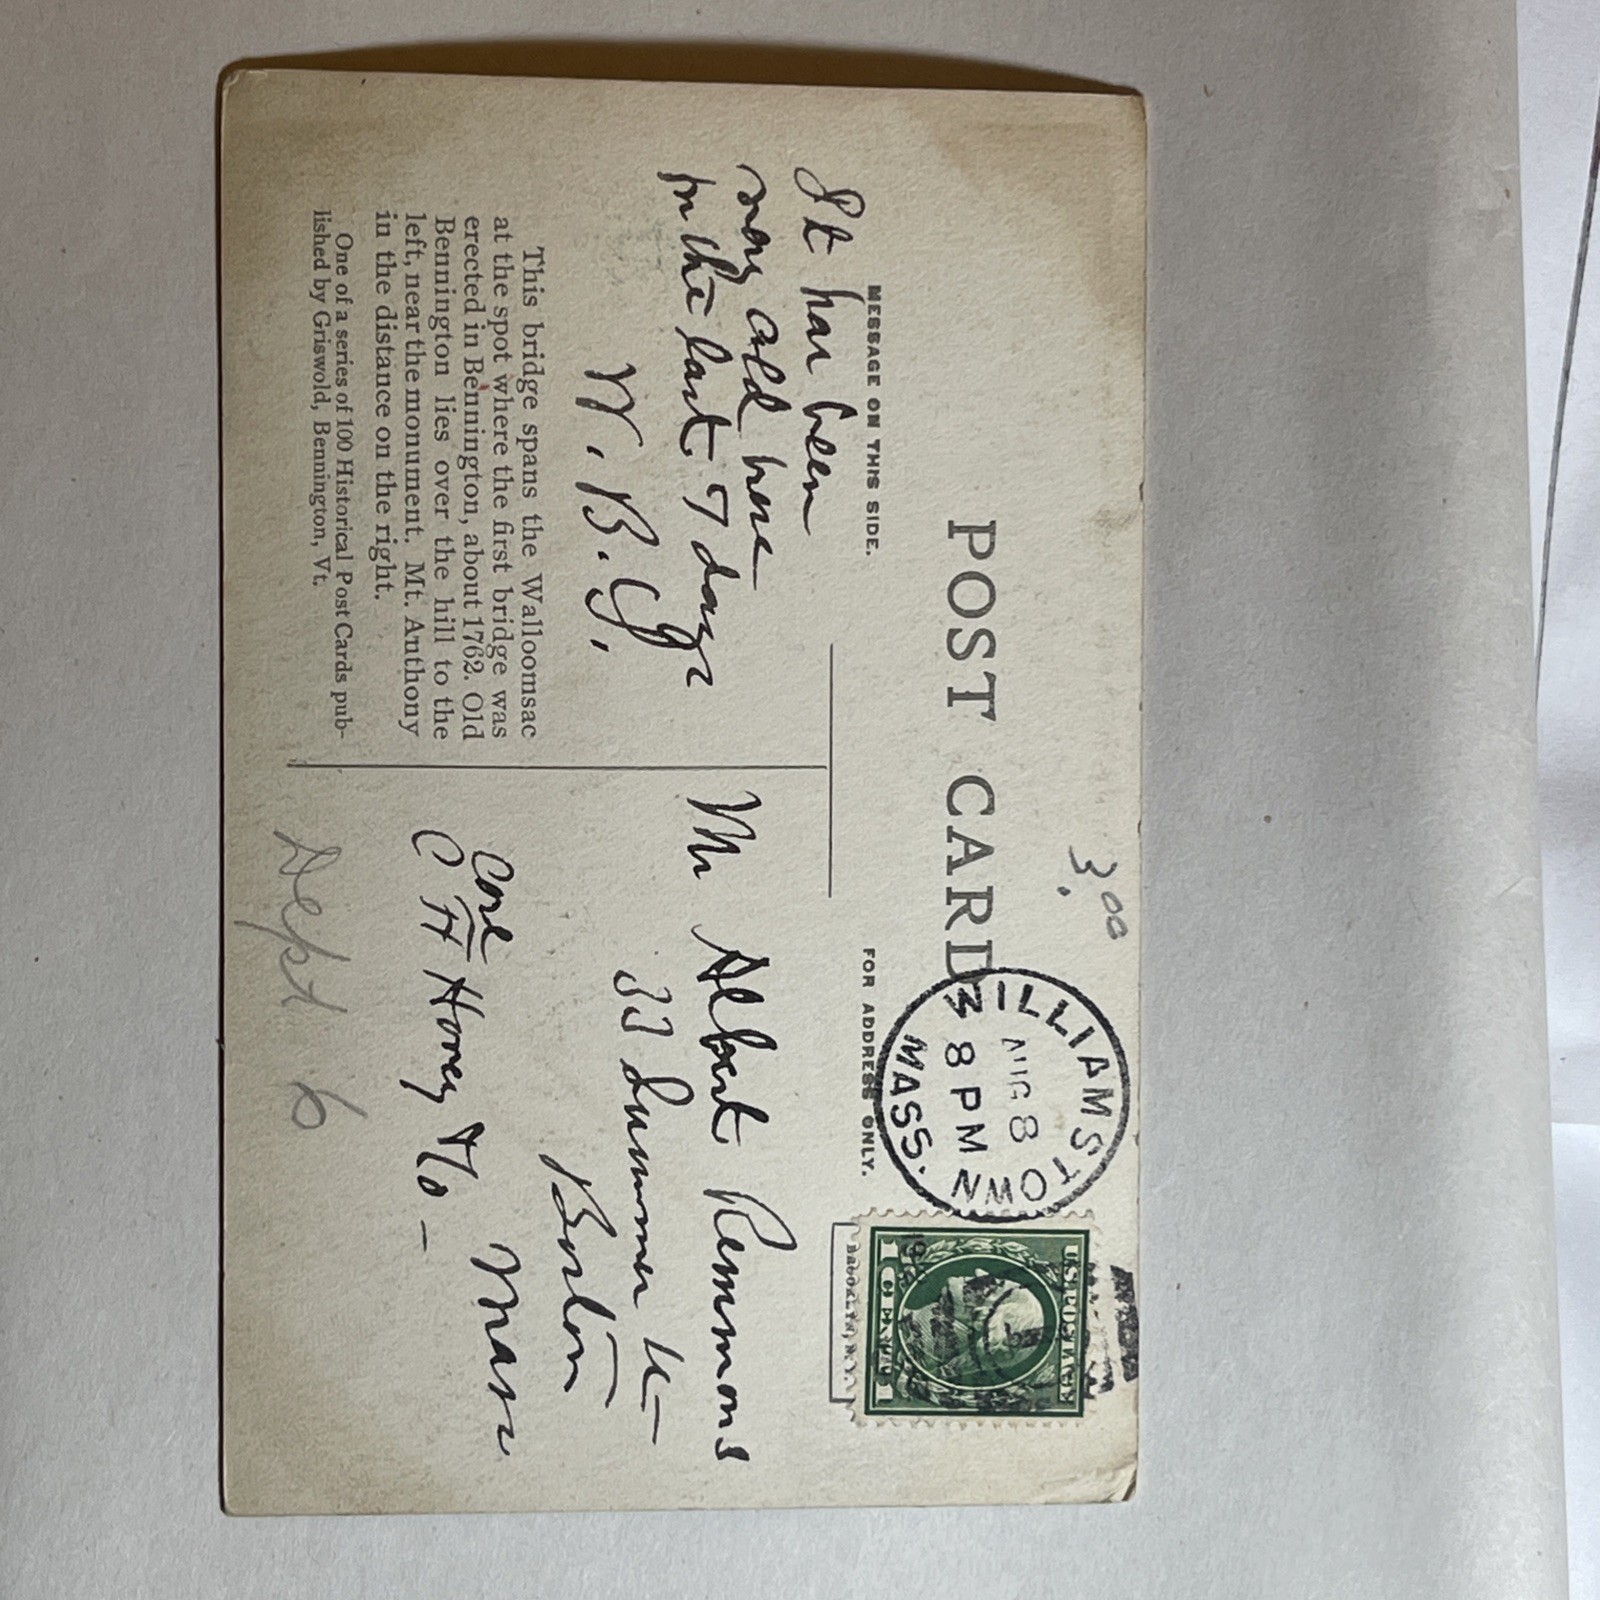 3.00
POST CARD
MESSAGE ON THIS SIDE.
FOR ADDRESS ONLY.
WILLIAMSTOWN
AUG 8
8 PM
MASS.
U.S. POSTAGE
1 CENT 1
BROOKLYN, N.Y.
It has been
very cold here
in the last 7 days
W. B. G.
This bridge spans the Walloomsac
at the spot where the first bridge was
erected in Bennington, about 1762. Old
Bennington lies over the hill to the
left, near the monument. Mt. Anthony
in the distance on the right.
One of a series of 100 Historical Post Cards pub-
lished by Griswold, Bennington, Vt.
Mr Albert Remmons
33 Summer St
Boston
Mass
Care
C H Hovey & Co
Dept 6